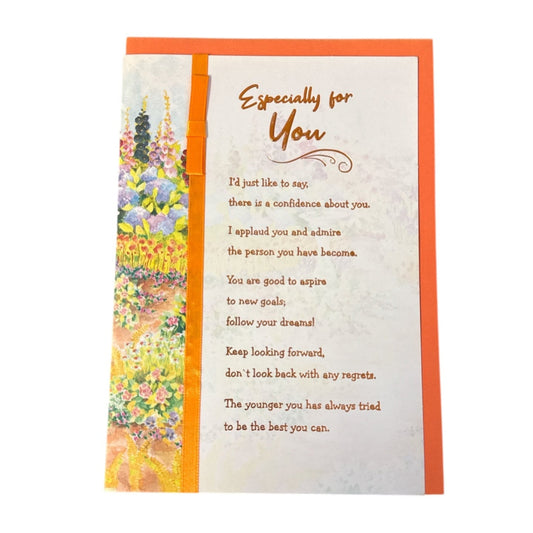 Especially for
You
I'd just like to say,
there is a confidence about you.
I applaud you and admire
the person you have become.
You are good to aspire
to new goals;
follow your dreams!
Keep looking forward,
don`t look back with any regrets.
The younger you has always tried
to be the best you can.